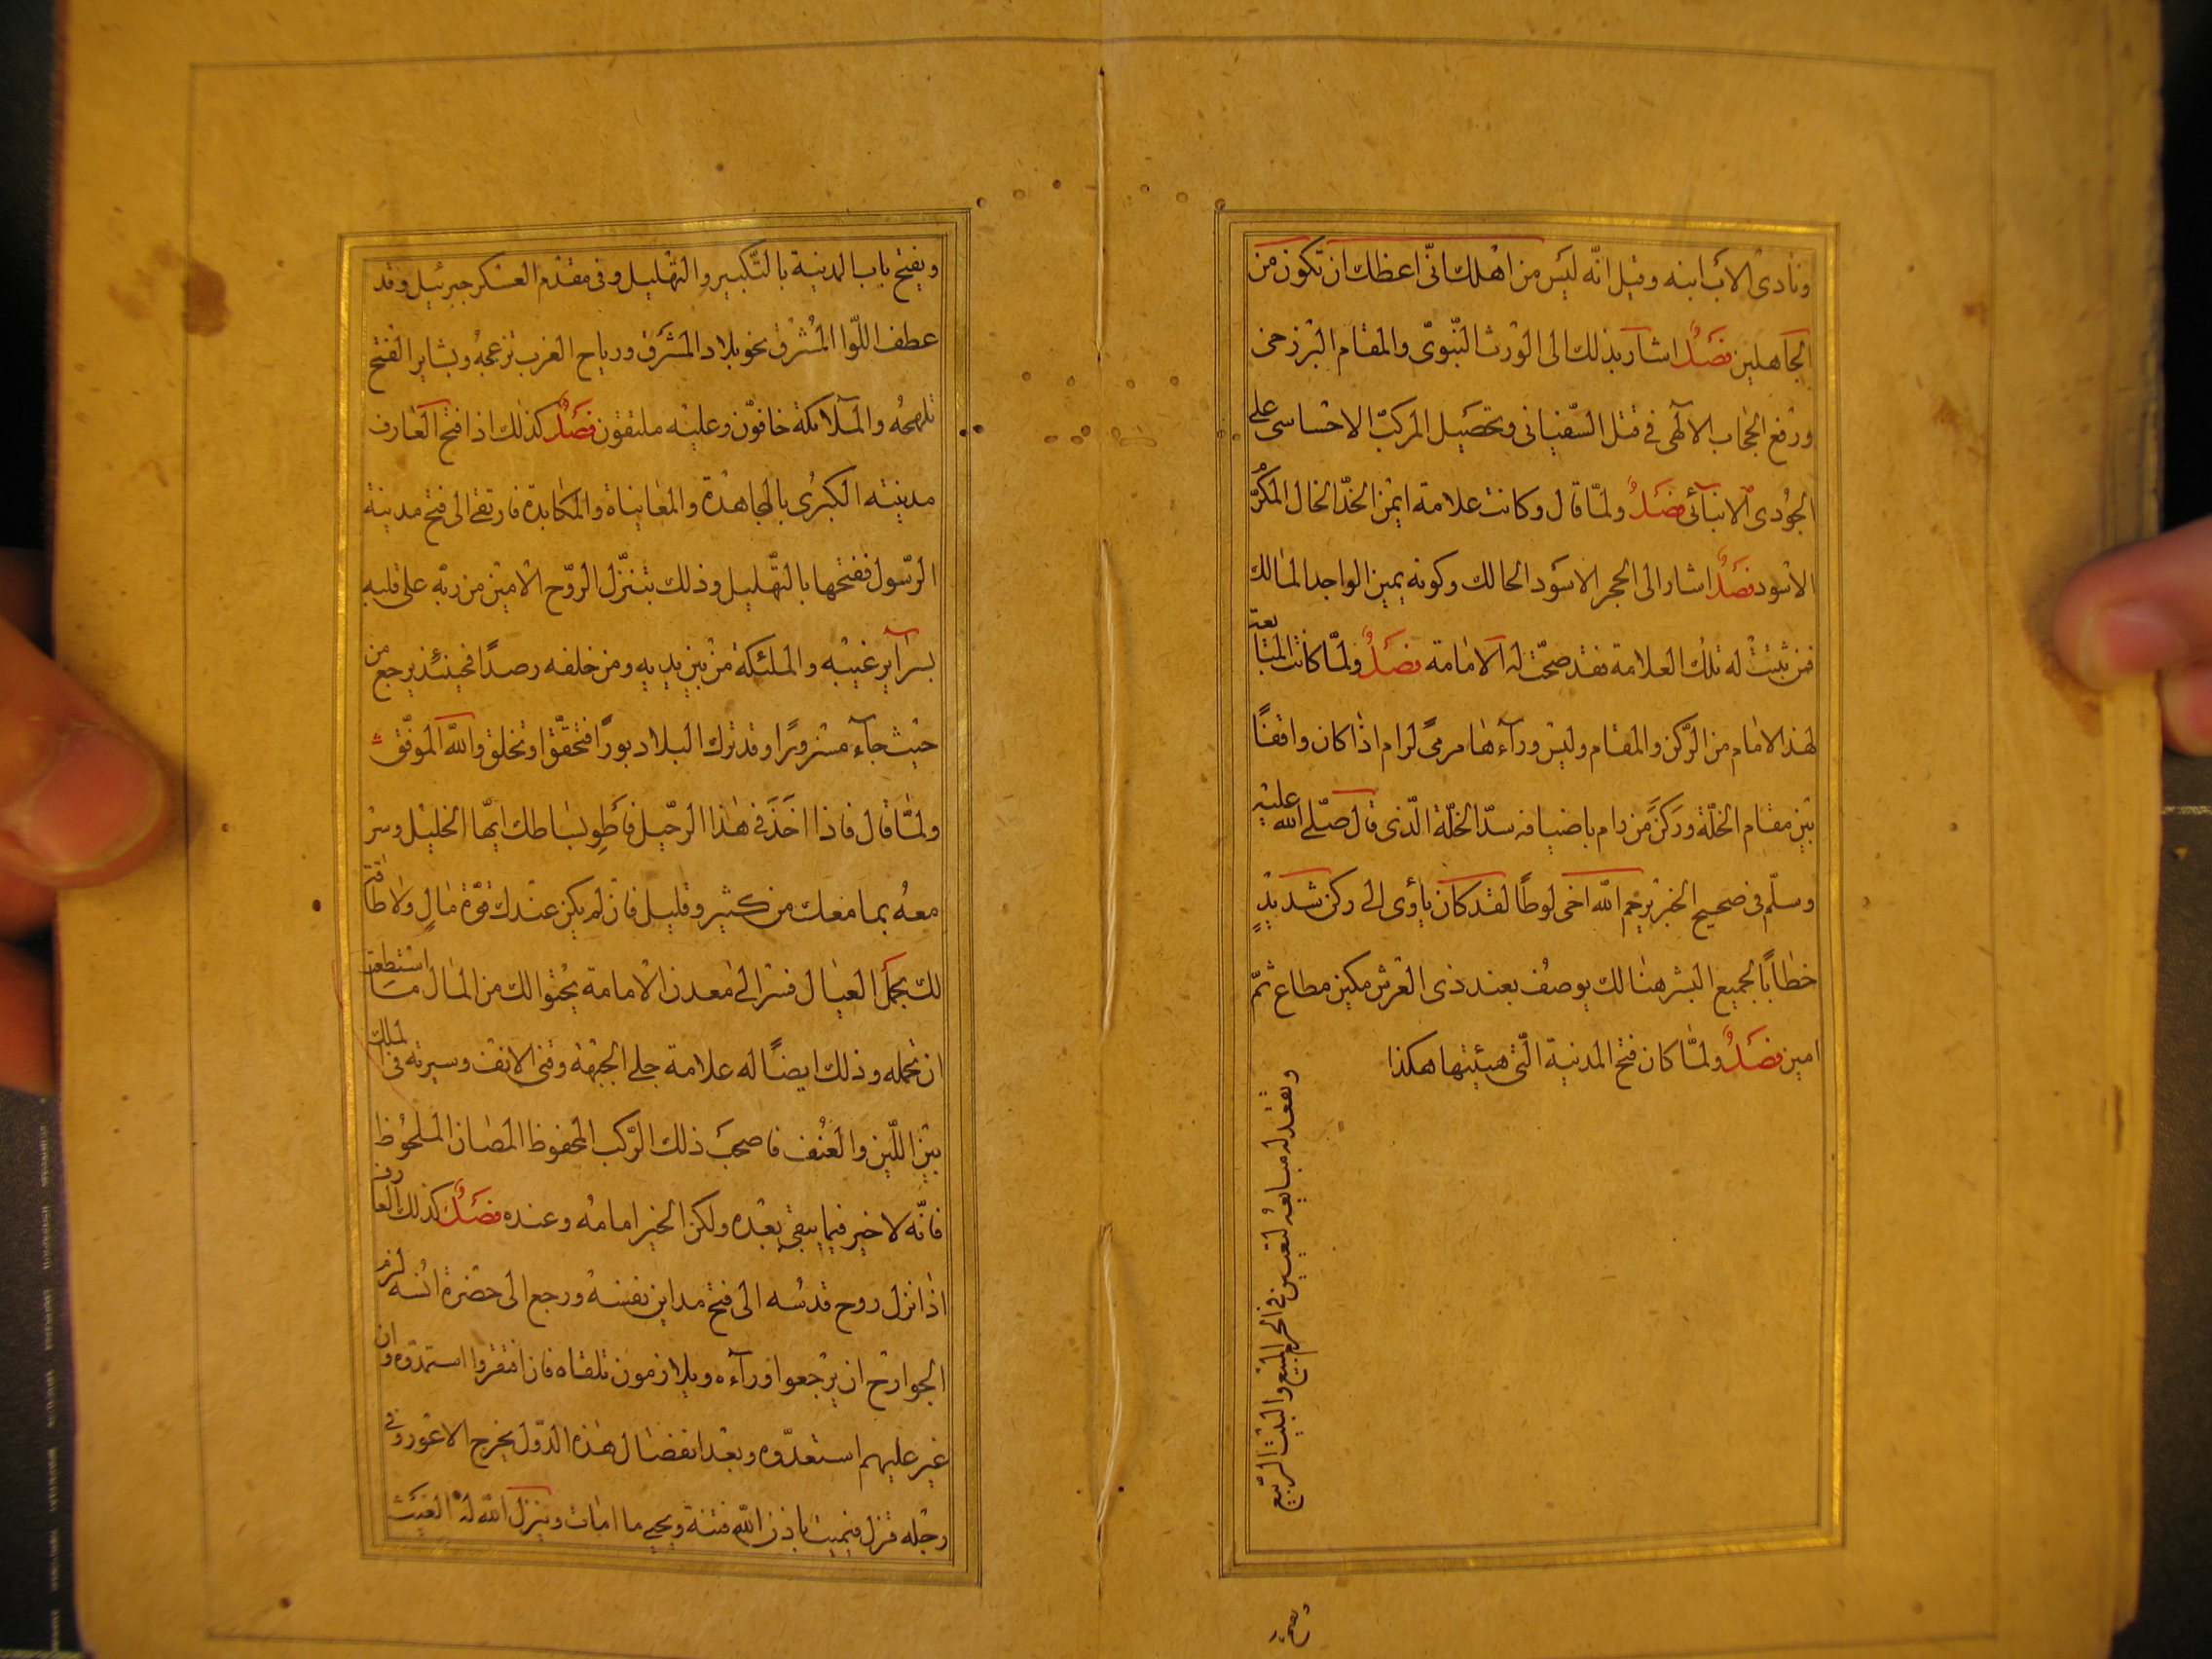 ونادى الأب ابنه وقيل انّه ليس من اهلك انّى اعظك ان تكون من
الجاهلين فصلٌ اشار بذلك الى الورث النّبوىّ والمقام البرزخى
ورفع الحجاب الالٓهى فى قتل السّفيانى وتحصيل المركبّ الاحساسى على
الجُودى الانبآئى فصلٌ ولمّا قال وكانت علامة ايمن الخدّ الخال المكرّ
الاسود فصلٌ اشار الى الحجر الاسود الحالك وكونه يمين الواجد المالك
فمن ثبتت له تلك العلامة فقد صحّت له الامامة فصلٌ ولمّا كانت المبايعة
لهذا الامام من الرّكن والمقام وليس ورآءها مرمىً لرام اذا كان واقفاً
بين مقام الخلّة وركن من رام باضيافه سدّ الخلّة الّذى قال صلّى الله عليه
وسلّم فى صحيح الخبر يرحم الله اخى لوطاً لقد كان يأوى الى ركن شديدٍ
خطاباً لجميع البشر هنالك يوصف بعند ذى العرش مكين مطاع ثمّ
امين فصلٌ ولمّا كان فتح المدينة الّتى هيئتها هكذا
وتقعد له مبايعهُ لتعين فى الحرم المنيع والبيت الرّفيع
ويفتح
ويفتح باب المدينة بالتّكبير والتهليل وفى مقدّم العسكر جبرئيل وقد
عطف اللّوا المُشرق نحو بلاد المشرق ورياح الغرب تزعجهُ وبشاير الفتح
تلهمهُ والملآئكة حافّون وعليه ملتفون فصلٌ كذلك اذا فتح العارف
مدينته الكبرى بالمجاهدة والمعاناة والمكابدة فارتقى الى فتح مدينة
الرّسول ففتحها بالتّهليل وذلك بتنزّل الرّوح الامين من ربّه على قلبه
بسرآير غيبه والملئكة من بين يديه ومن خلفه رصداً فحينئذٍ يرجع من
حيث جآء مسروراً وقد ترك البلاد بوراً فتحقّق او تخلق والله الموفّق
ولمّا قال فاذا اخَذَ فى هذا الرحيل فأطوِ بساطك ايّها الخليل وسر
معهُ بما معك من كثير وقليل فان لم يكن عندك قوّة مالٍ ولا طاقة
لك بحمل العيال فسر الى معدن الامامة يحثوا لك من المال ما استطعت
ان تحمله وذلك ايضاً له علامة جلى الجبهة وقنى الانف وسيرته فى الملك
بين اللّين والعُنف فاصحب ذلك الرّكب المحفوظ المصان الملحوظ
فانّه لا خير فيما يبقى بعده ولكن الخير امامهُ وعنده فصلٌ كذلك العارف
اذا نزل روح قدسُه الى فتح مداين نفسهُ ورجع الى حضرة انُسه لزم
الجوارح ان يرجعوا ورآءه ويلازمون تلقاه فان افتقروا استمدّوه وان
غير عليهم استعدّوه وبعد انفضال هذه الدّول يخرج الاعور وفى
رجله قزل فيميت باذن الله فتنة ويحيى ما امات وينزل الله له الغيث